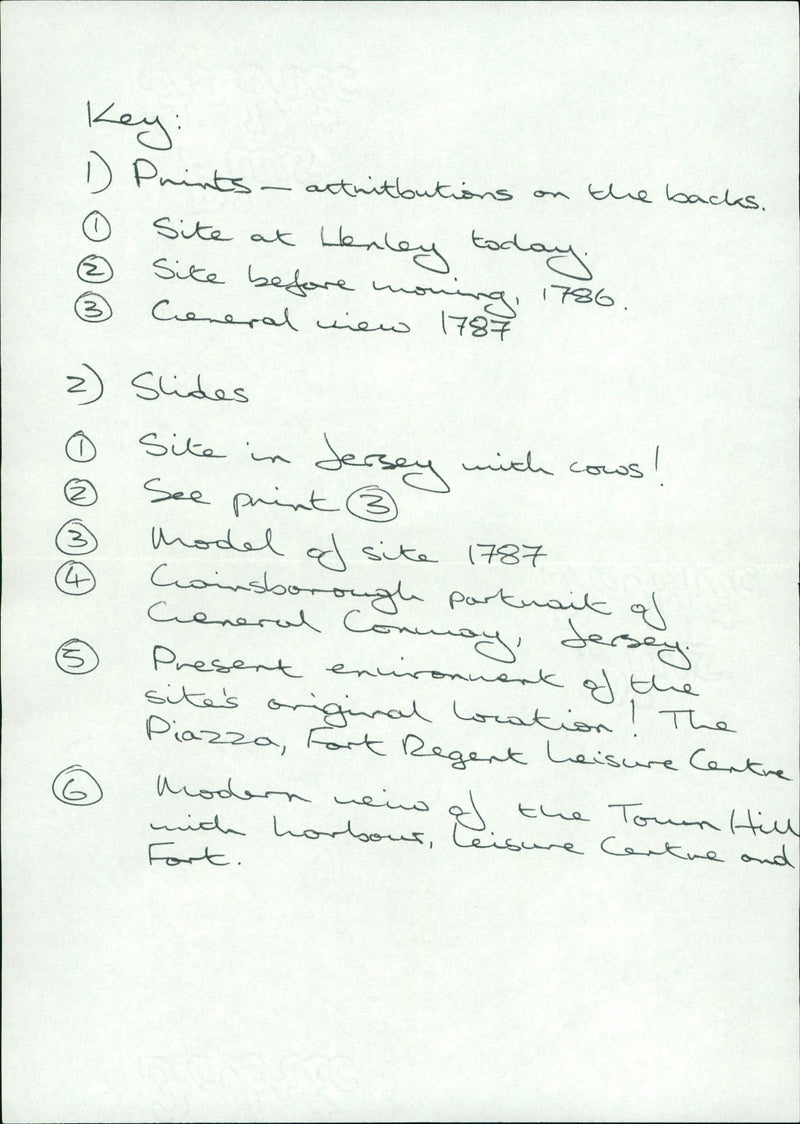 Key:
1) Prints — attnitbutions on the backs.
① Site at Henley today.
② Site before moving, 1786.
③ General view 1787
2) Slides
① Site in Jersey with cows!
② See print ③
③ Model of site 1787
④ Gainsborough portrait of
General Conway, Jersey.
⑤ Present environment of the
site's original location! The
Piazza, Fort Regent Leisure Centre
⑥ Modern view of the Town Hill
with harbour, Leisure Centre and
Fort.